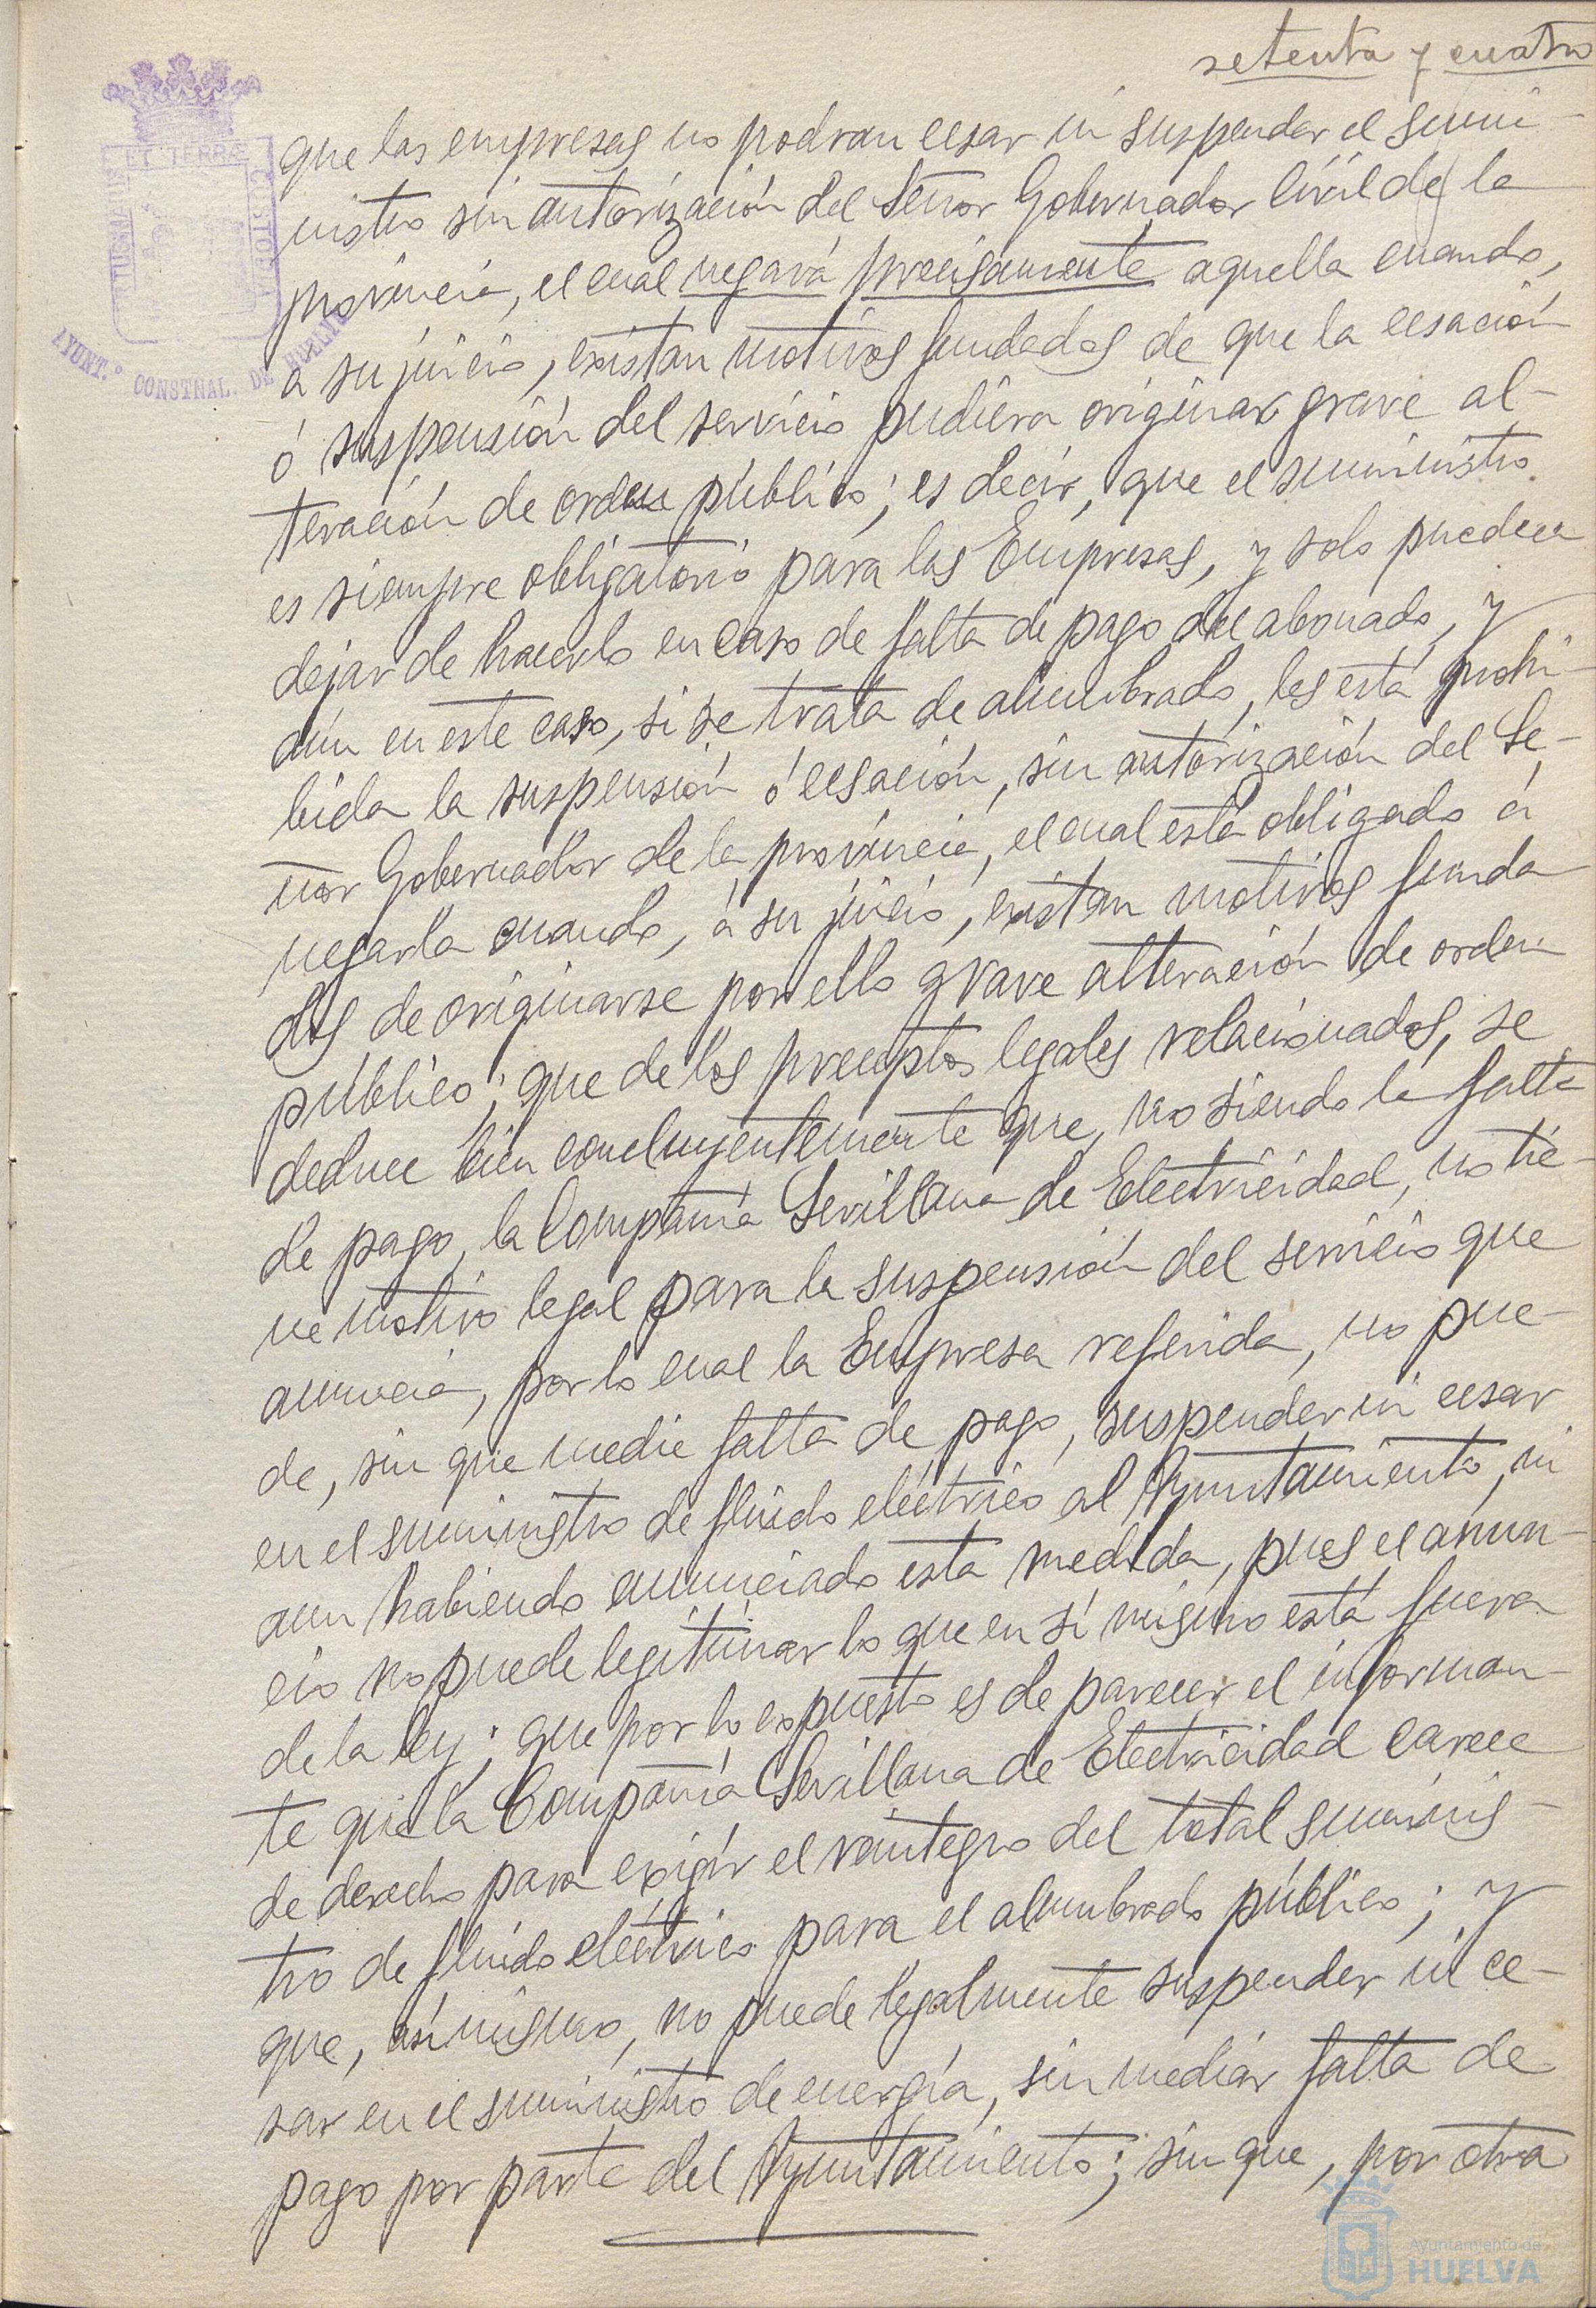 setenta y cuatro
que las empresas no podran cesar ni suspender el sumi-
nistro sin autorización del Señor Gobernador Civil de la
provincia, el cual negará precisamente aquella cuando,
a su juicio, existan motivos fundados de que la cesación
ó suspensión del servicio pudiera originar grave al-
teración de orden público; es decir, que el suministro
es siempre obligatorio para las Empresas, y solo pueden
dejar de hacerlo en caso de falta de pago del abonado, y
aún en este caso, si se trata de alumbrado, les está prohi-
bida la suspensión ó cesación, sin autorización del Se-
ñor Gobernador de la provincia, el cual está obligado á
negarla cuando, á su juicio, existan motivos funda
dos de originarse por ello grave alteración de orden
público; que de los preceptos legales relacionados, se
deduce bien concluyentemente que, no siendo la falta
de pago, la Compañia Sevillana de Electricidad, no tie-
ne motivo legal para la suspensión del servicio que
anuncia, por lo cual la Empresa referida, no pue-
de, sin que medie falta de pago, suspender ni cesar
en el suministro de fluido eléctrico al Ayuntamiento, ni
aun habiendo anunciado esta medida, pues el anun-
cio no puede legitimar lo que en sí mismo está fuera
de la ley; que por lo expuesto es de parecer el informan-
te que la Compañía Sevillana de Electricidad carece
de derecho para exigir el reintegro del total suminis-
tro de fluido eléctrico para el alumbrado público; y
que, asimismo, no puede legalmente suspender ni ce-
sar en el suministro de energía, sin mediar falta de
pago por parte del Ayuntamiento; sin que, por otra
ET TERRÆ
CUSTODIA
AYUNT.º CONSTNAL. DE HUELVA
Ayuntamiento de
HUELVA